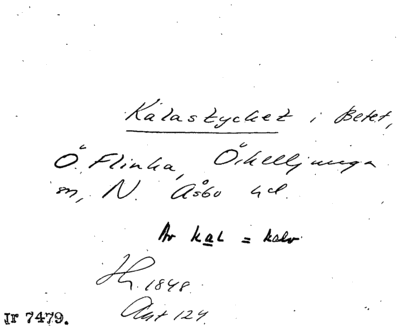 Kalastychet i Betet,
Ö. Flinka, Örkelljunga
sn, N. Åsbo hd.
Av kal = kalv
Jr 7479.
1848.
Akt 124.